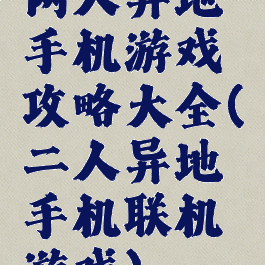 两人异地
手机游戏
攻略大全(
二人异地
手机联机
游戏)